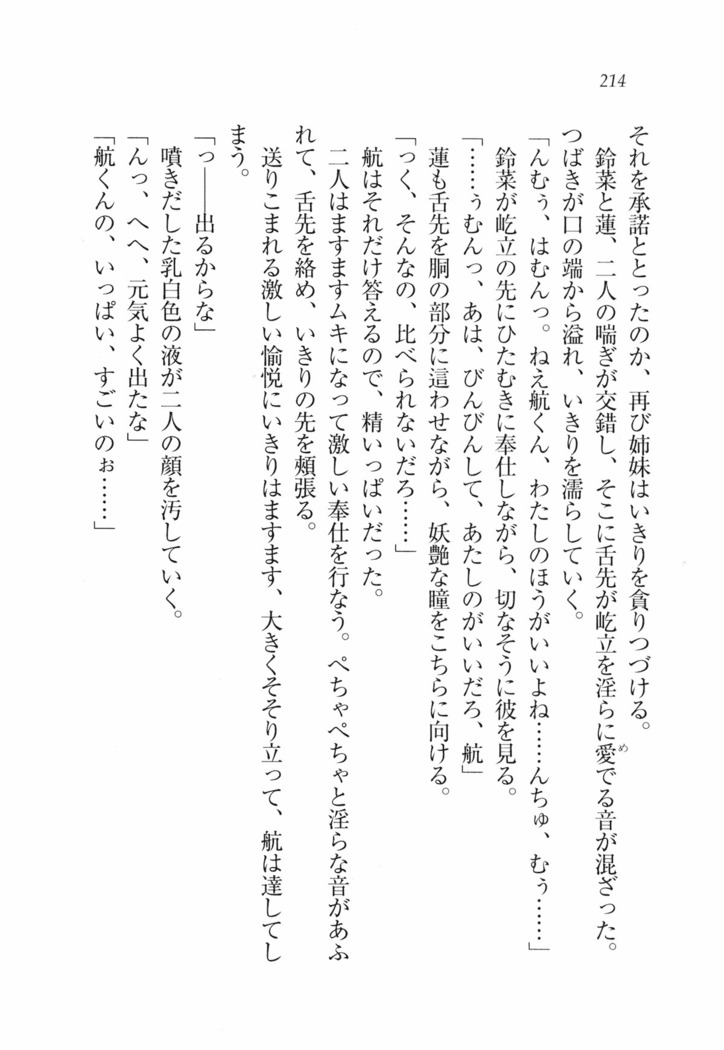 214
それを承諾ととったのか、再び姉妹はいきりを貪りつづける。
鈴菜と蓮、二人の喘ぎが交錯し、そこに舌先が屹立を淫らに愛でる音が混ざった。
め
つばきが口の端から溢れ、いきりを濡らしていく。
「んむぅ、はむんっ。ねえ航くん、わたしのほうがいいよね……んちゅ、むぅ……」
鈴菜が屹立の先にひたむきに奉仕しながら、切なそうに彼を見る。
「……ぅむんっ、あは、びんびんして、あたしのがいいだろ、航」
蓮も舌先を胴の部分に這わせながら、妖艶な瞳をこちらに向ける。
「っく、そんなの、比べられないだろ……」
航はそれだけ答えるので、精いっぱいだった。
二人はますますムキになって激しい奉仕を行なう。ぺちゃぺちゃと淫らな音があふ
れて、舌先を絡め、いきりの先を頬張る。
送りこまれる激しい愉悦にいきりはますます、大きくそそり立って、航は達してし
まう。
「っ――出るからな」
噴きだした乳白色の液が二人の顔を汚していく。
「んっ、へへ、元気よく出たな」
「航くんの、いっぱい、すごいのぉ……」